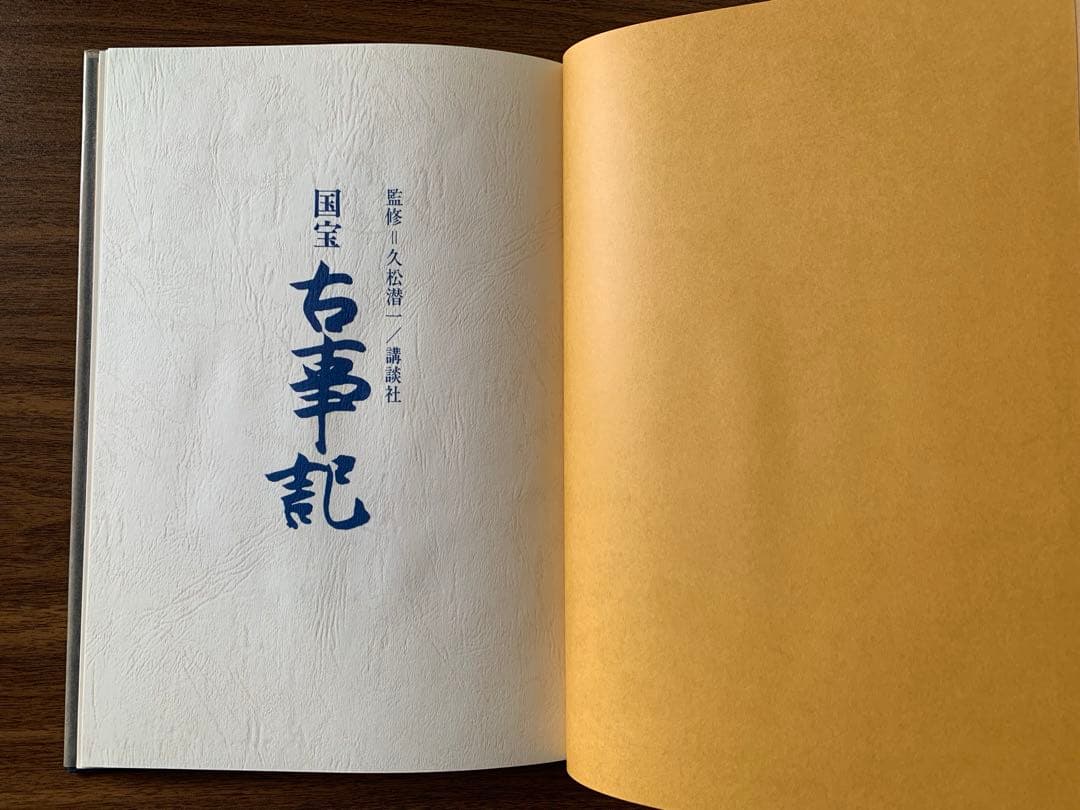 監修=久松潜一/講談社
国宝 古事記